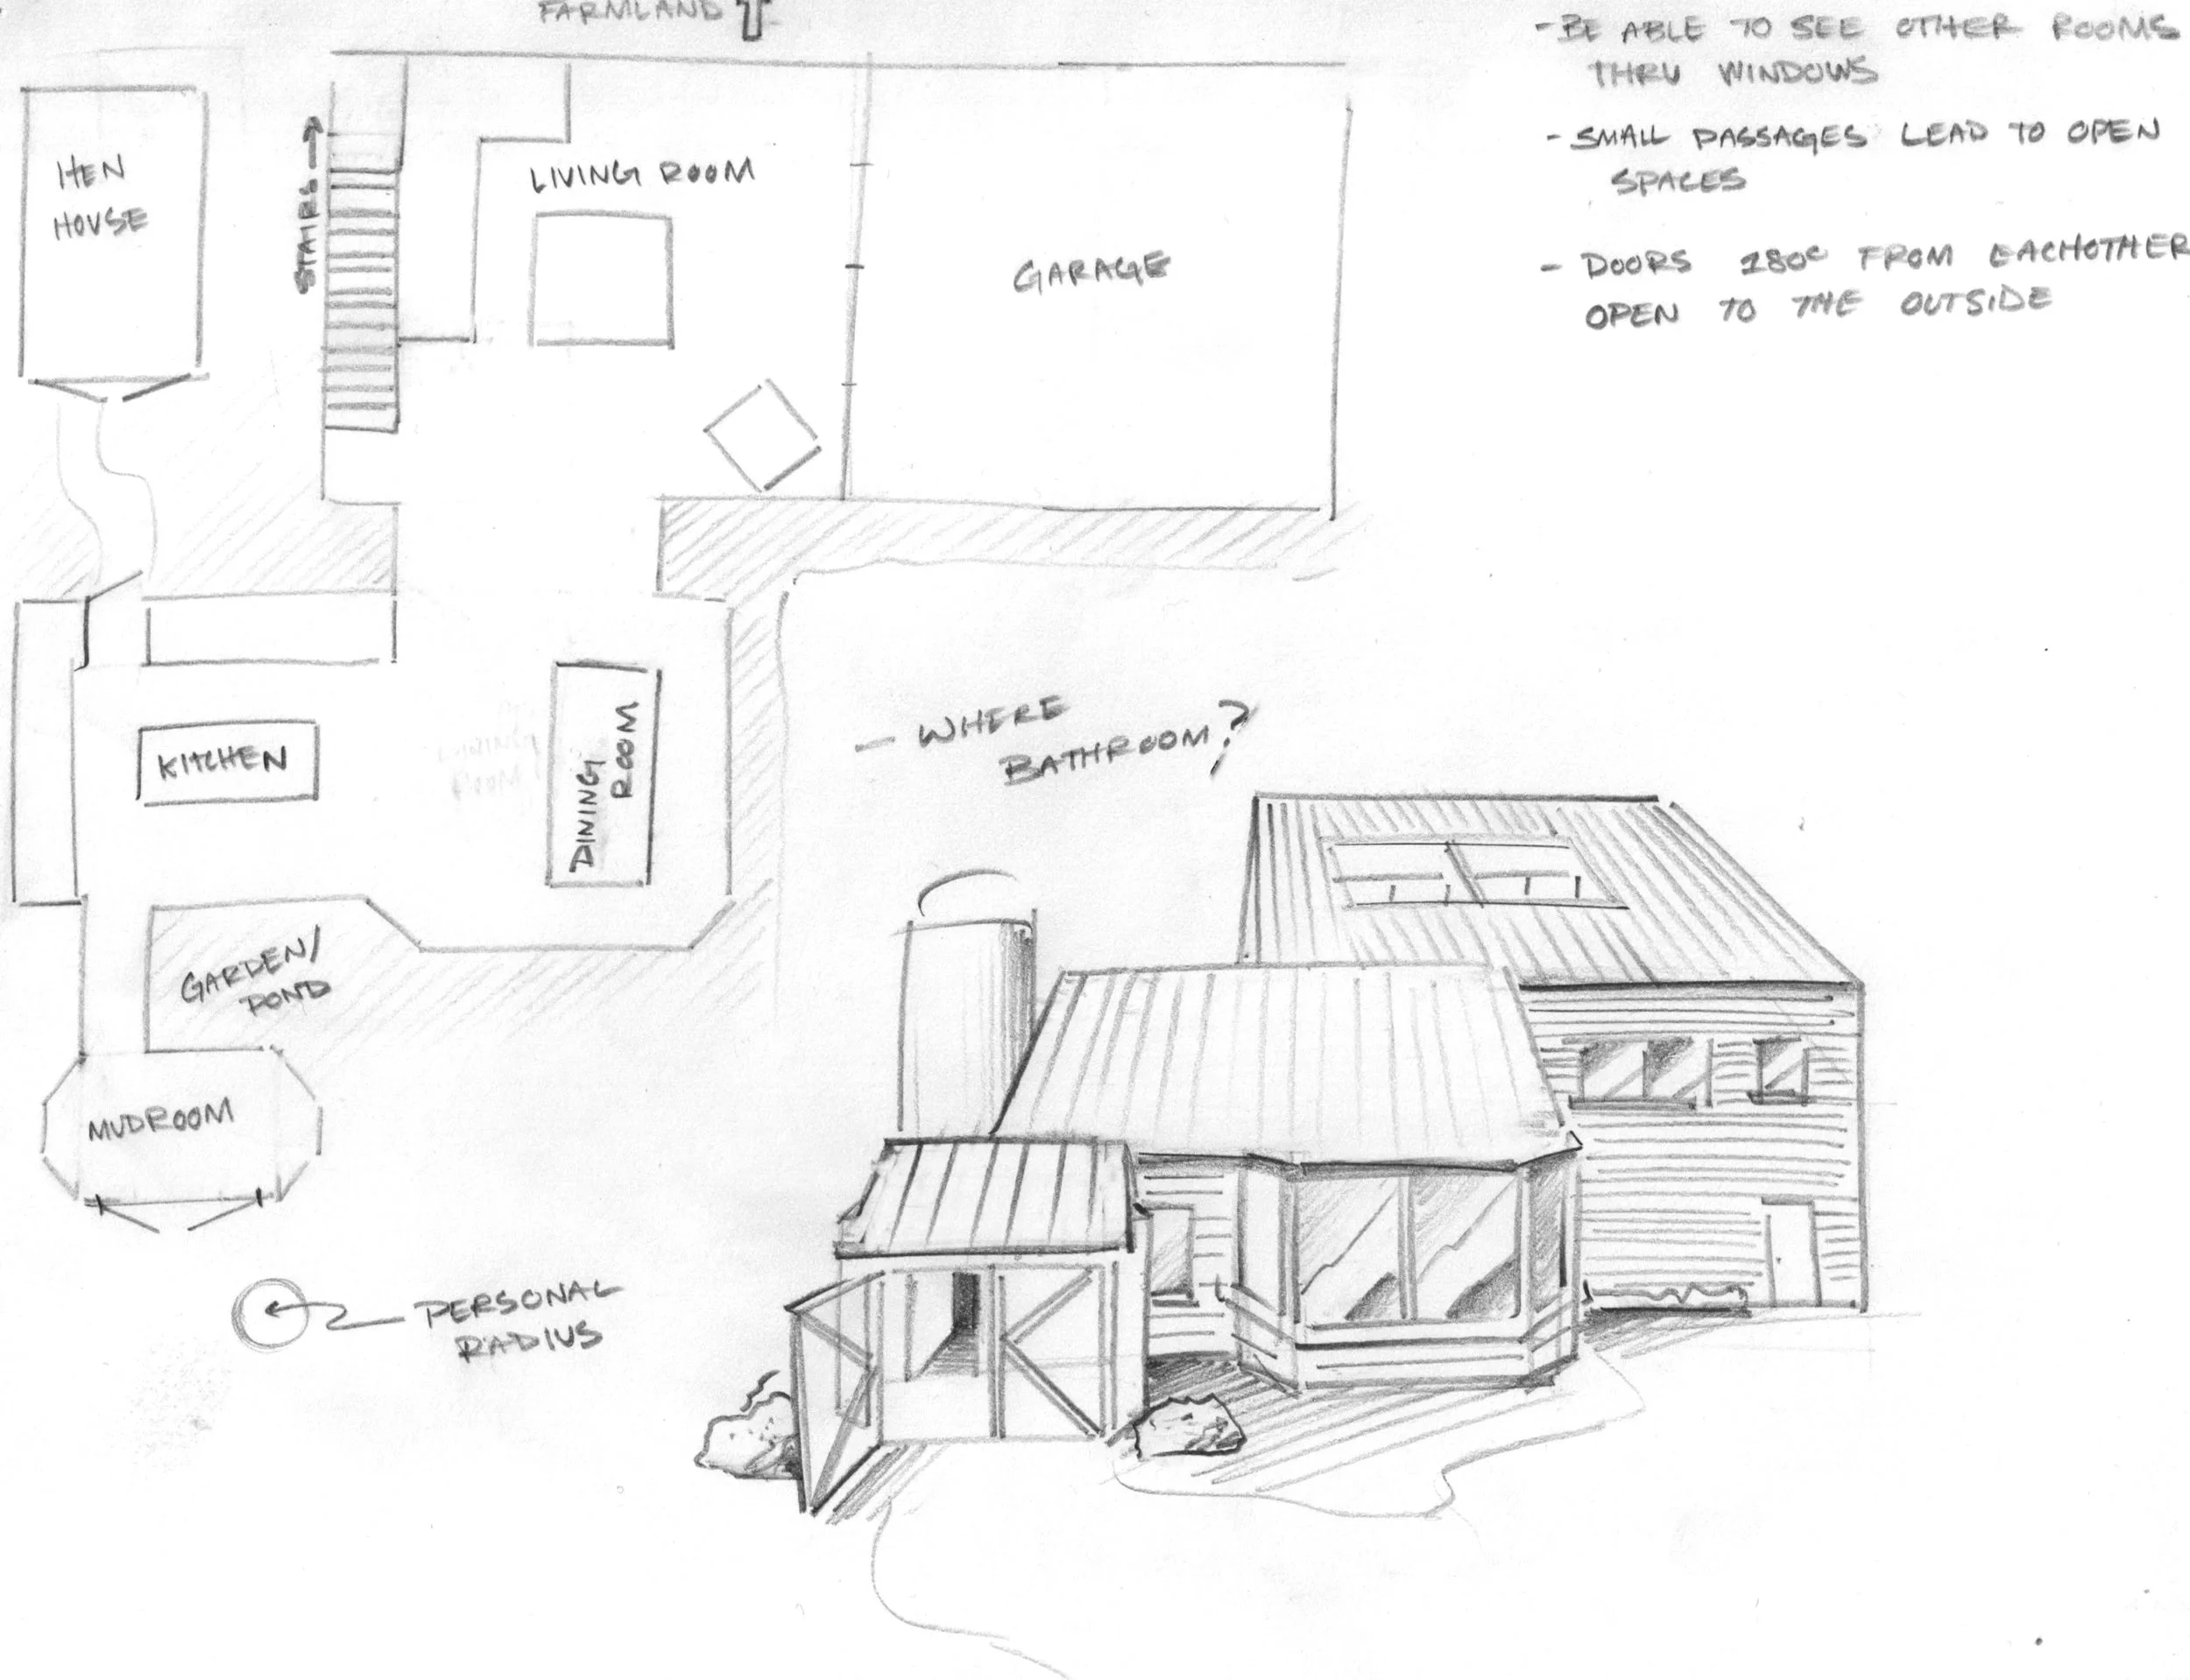 FARMLAND
- BE ABLE TO SEE OTHER ROOMS
THRU WINDOWS
- SMALL PASSAGES LEAD TO OPEN
SPACES
- DOORS 180° FROM EACHOTHER
OPEN TO THE OUTSIDE
HEN
HOUSE
STAIRS
LIVING ROOM
GARAGE
KITCHEN
DINING
ROOM
- WHERE
BATHROOM?
GARDEN/
POND
MUDROOM
PERSONAL
RADIUS